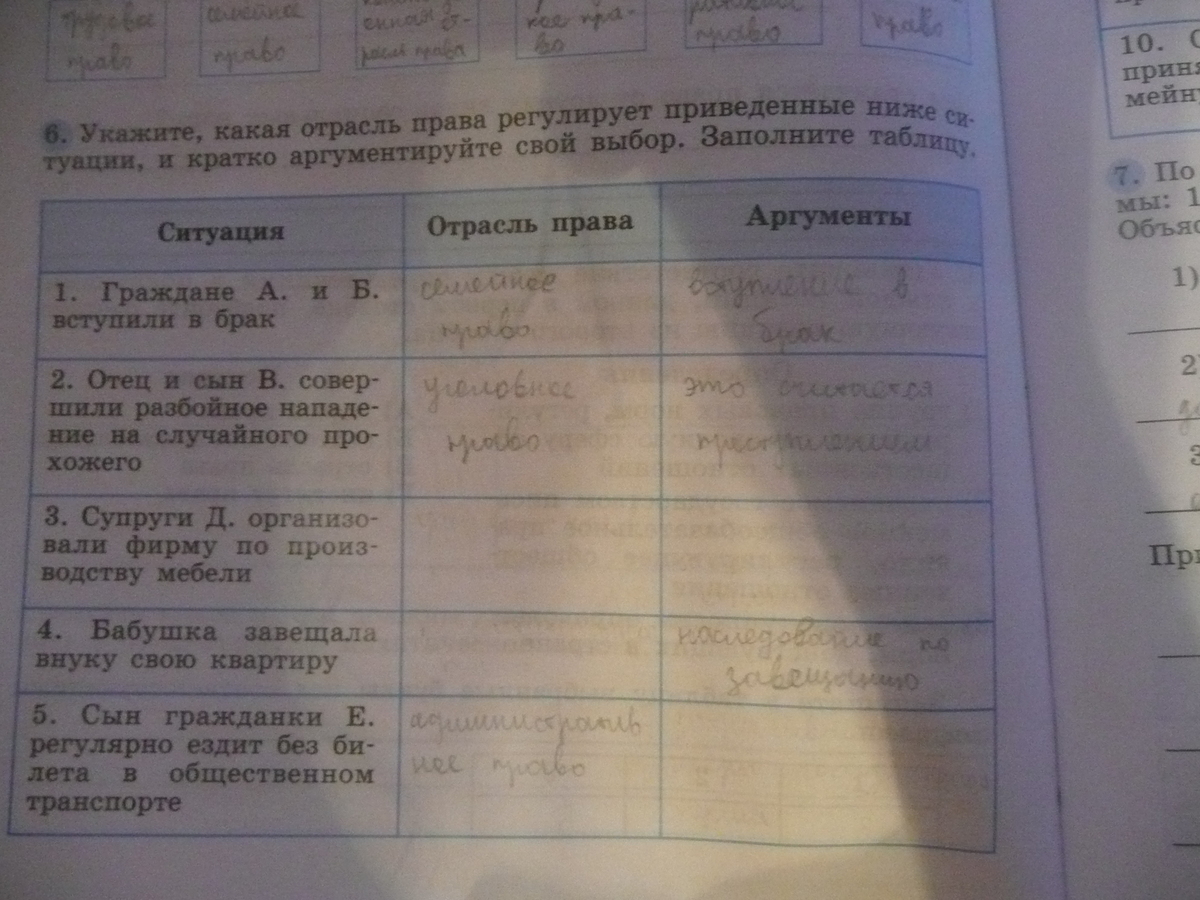 трудовое
право
семейное
право
енная от-
расль права
кое пра-
во
право
право
6. Укажите, какая отрасль права регулирует приведенные ниже си-
туации, и кратко аргументируйте свой выбор. Заполните таблицу.
Ситуация
Отрасль права
Аргументы
1. Граждане А. и Б.
вступили в брак
семейное
право
вступление в
брак
2. Отец и сын В. совер-
шили разбойное нападе-
ние на случайного про-
хожего
уголовное
право
это считается
преступлением
3. Супруги Д. организо-
вали фирму по произ-
водству мебели
4. Бабушка завещала
внуку свою квартиру
наследование по
завещанию
5. Сын гражданки Е.
регулярно ездит без би-
лета в общественном
транспорте
административ
ное право
10.
приня
мейну
7. По
мы: 1
Объяс
1)
2
3
При